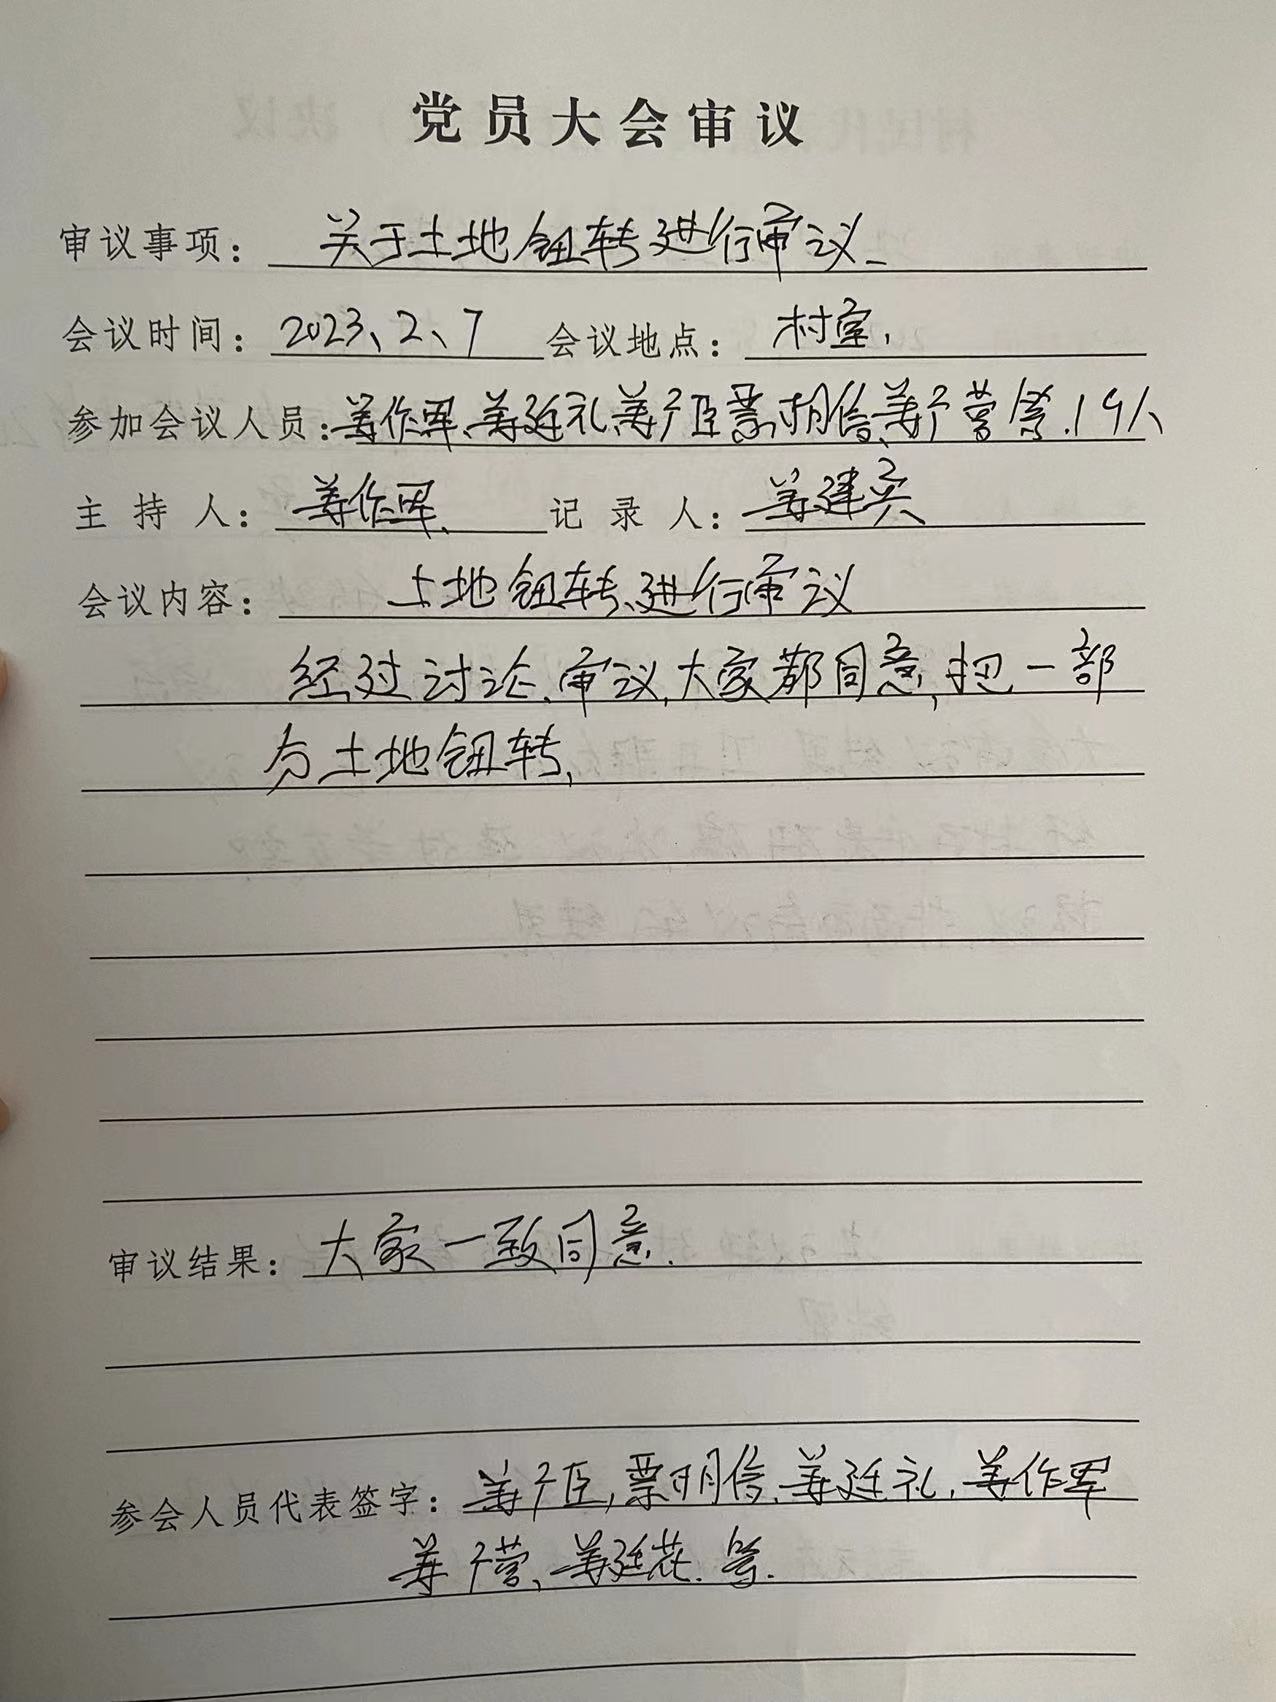 党员大会审议
审议事项：关于土地钮转进行审议
会议时间：2023、2、7 会议地点：村室.
参加会议人员：姜作军、姜廷礼、姜广臣、票明信、姜广营等.19人
主持人：姜作军、 记录人：姜建宾
会议内容：土地钮转、进行审议
经过讨论、审议,大家都同意,把一部
分土地钮转、
审议结果：大家一致同意.
参会人员代表签字：姜广臣,票明信、姜廷礼,姜作军
姜广营、姜廷花.等.